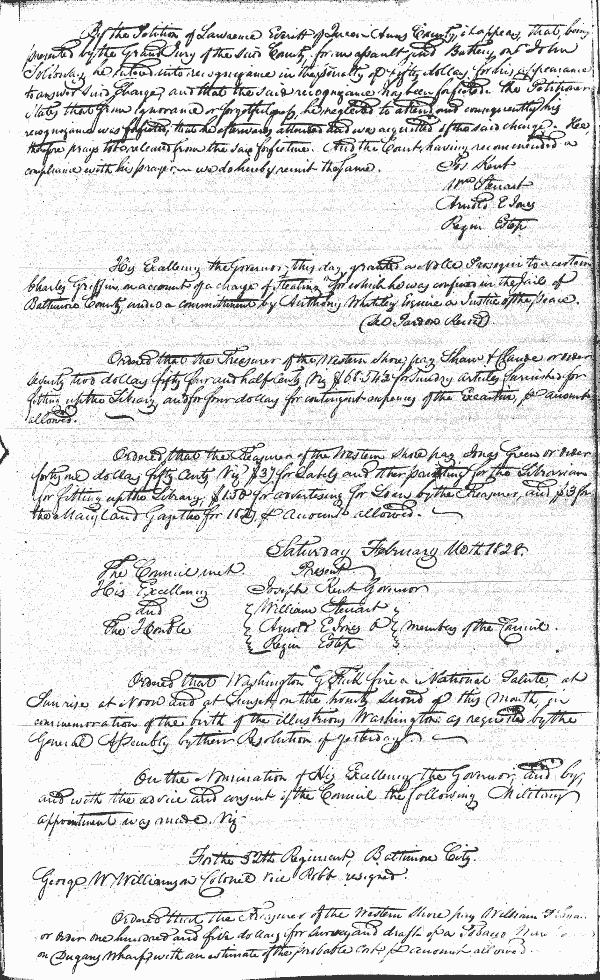 By the Petition of Lawrence Everitt of Queen Anns County, it appears, that, being
presented by the Grand Jury of the said County, for an assault and Battery, on John
he entered into recognizance in the penalty of fifty dollars, for his appearance
to answer said charge, and that the said recognizance has been forfeited. The Petitioner
states that from ignorance or forgetfulness, he neglected to attend, and consequently his
recognizance was forfeited, that he afterwards attended and was acquitted of the said charge. He
therefore prays to be released from the said forfeiture. And the Court, having recommended a
compliance with his prayer, we do hereby remit the same.
Jos. Kent
Wm. Steuart
Arnold E Jones
Rezin Estep
His Excellency the Governor, this day, granted a Nolle Prosequi to a certain
Charles Griffin, on account of a charge of stealing for which he was confined in the Jail of
Baltimore County, under a commitment by Anthony Esquire a Justice of the Peace.
(See Pardon Record)
Ordered that the Treasurer of the Western Shore pay Shaw & Claude or order
seventy two dollars fifty four and half cents, Viz $68.54½ for Sundry articles furnished for
fitting up the Library, and for four dollars for contingent expenses of the Executive, pr account
allowed.
Ordered that the Treasurer of the Western Shore pay Jonas Green or order
forty one dollars fifty cents, Viz $37 for Labels and other painting for the Librarian
for fitting up the Library, $1.50 for advertising for Loan by the Treasurer, and $3 for
the Maryland Gazette for pr account allowed.
Saturday February 16th 1828.
The Council met. Present
His Excellency Joseph Kent Governor
and William Steuart
The Honble Arnold E Jones & members of the Council.
Rezin Estep
Ordered that Washington G. fire a National Salute, at
Sun rise at Noon and at Sunset, on the twenty second of this month, in
commemoration of the birth of the illustrious Washington: as requested by the
General Assembly by their Resolution of yesterday.
On the Nomination of His Excellency the Governor, and by,
and with the advice and consent of the Council the following Military
appointment was made, Viz
For the 52th Regiment, Baltimore City.
George W. Williamson Colonel vice Robb resigned
Ordered that the Treasurer of the Western Shore pay William
or order one hundred and five dollars for survey and draft of a Tobacco
on Dugans Wharf, with an estimate of the probable cost pr account allowed.